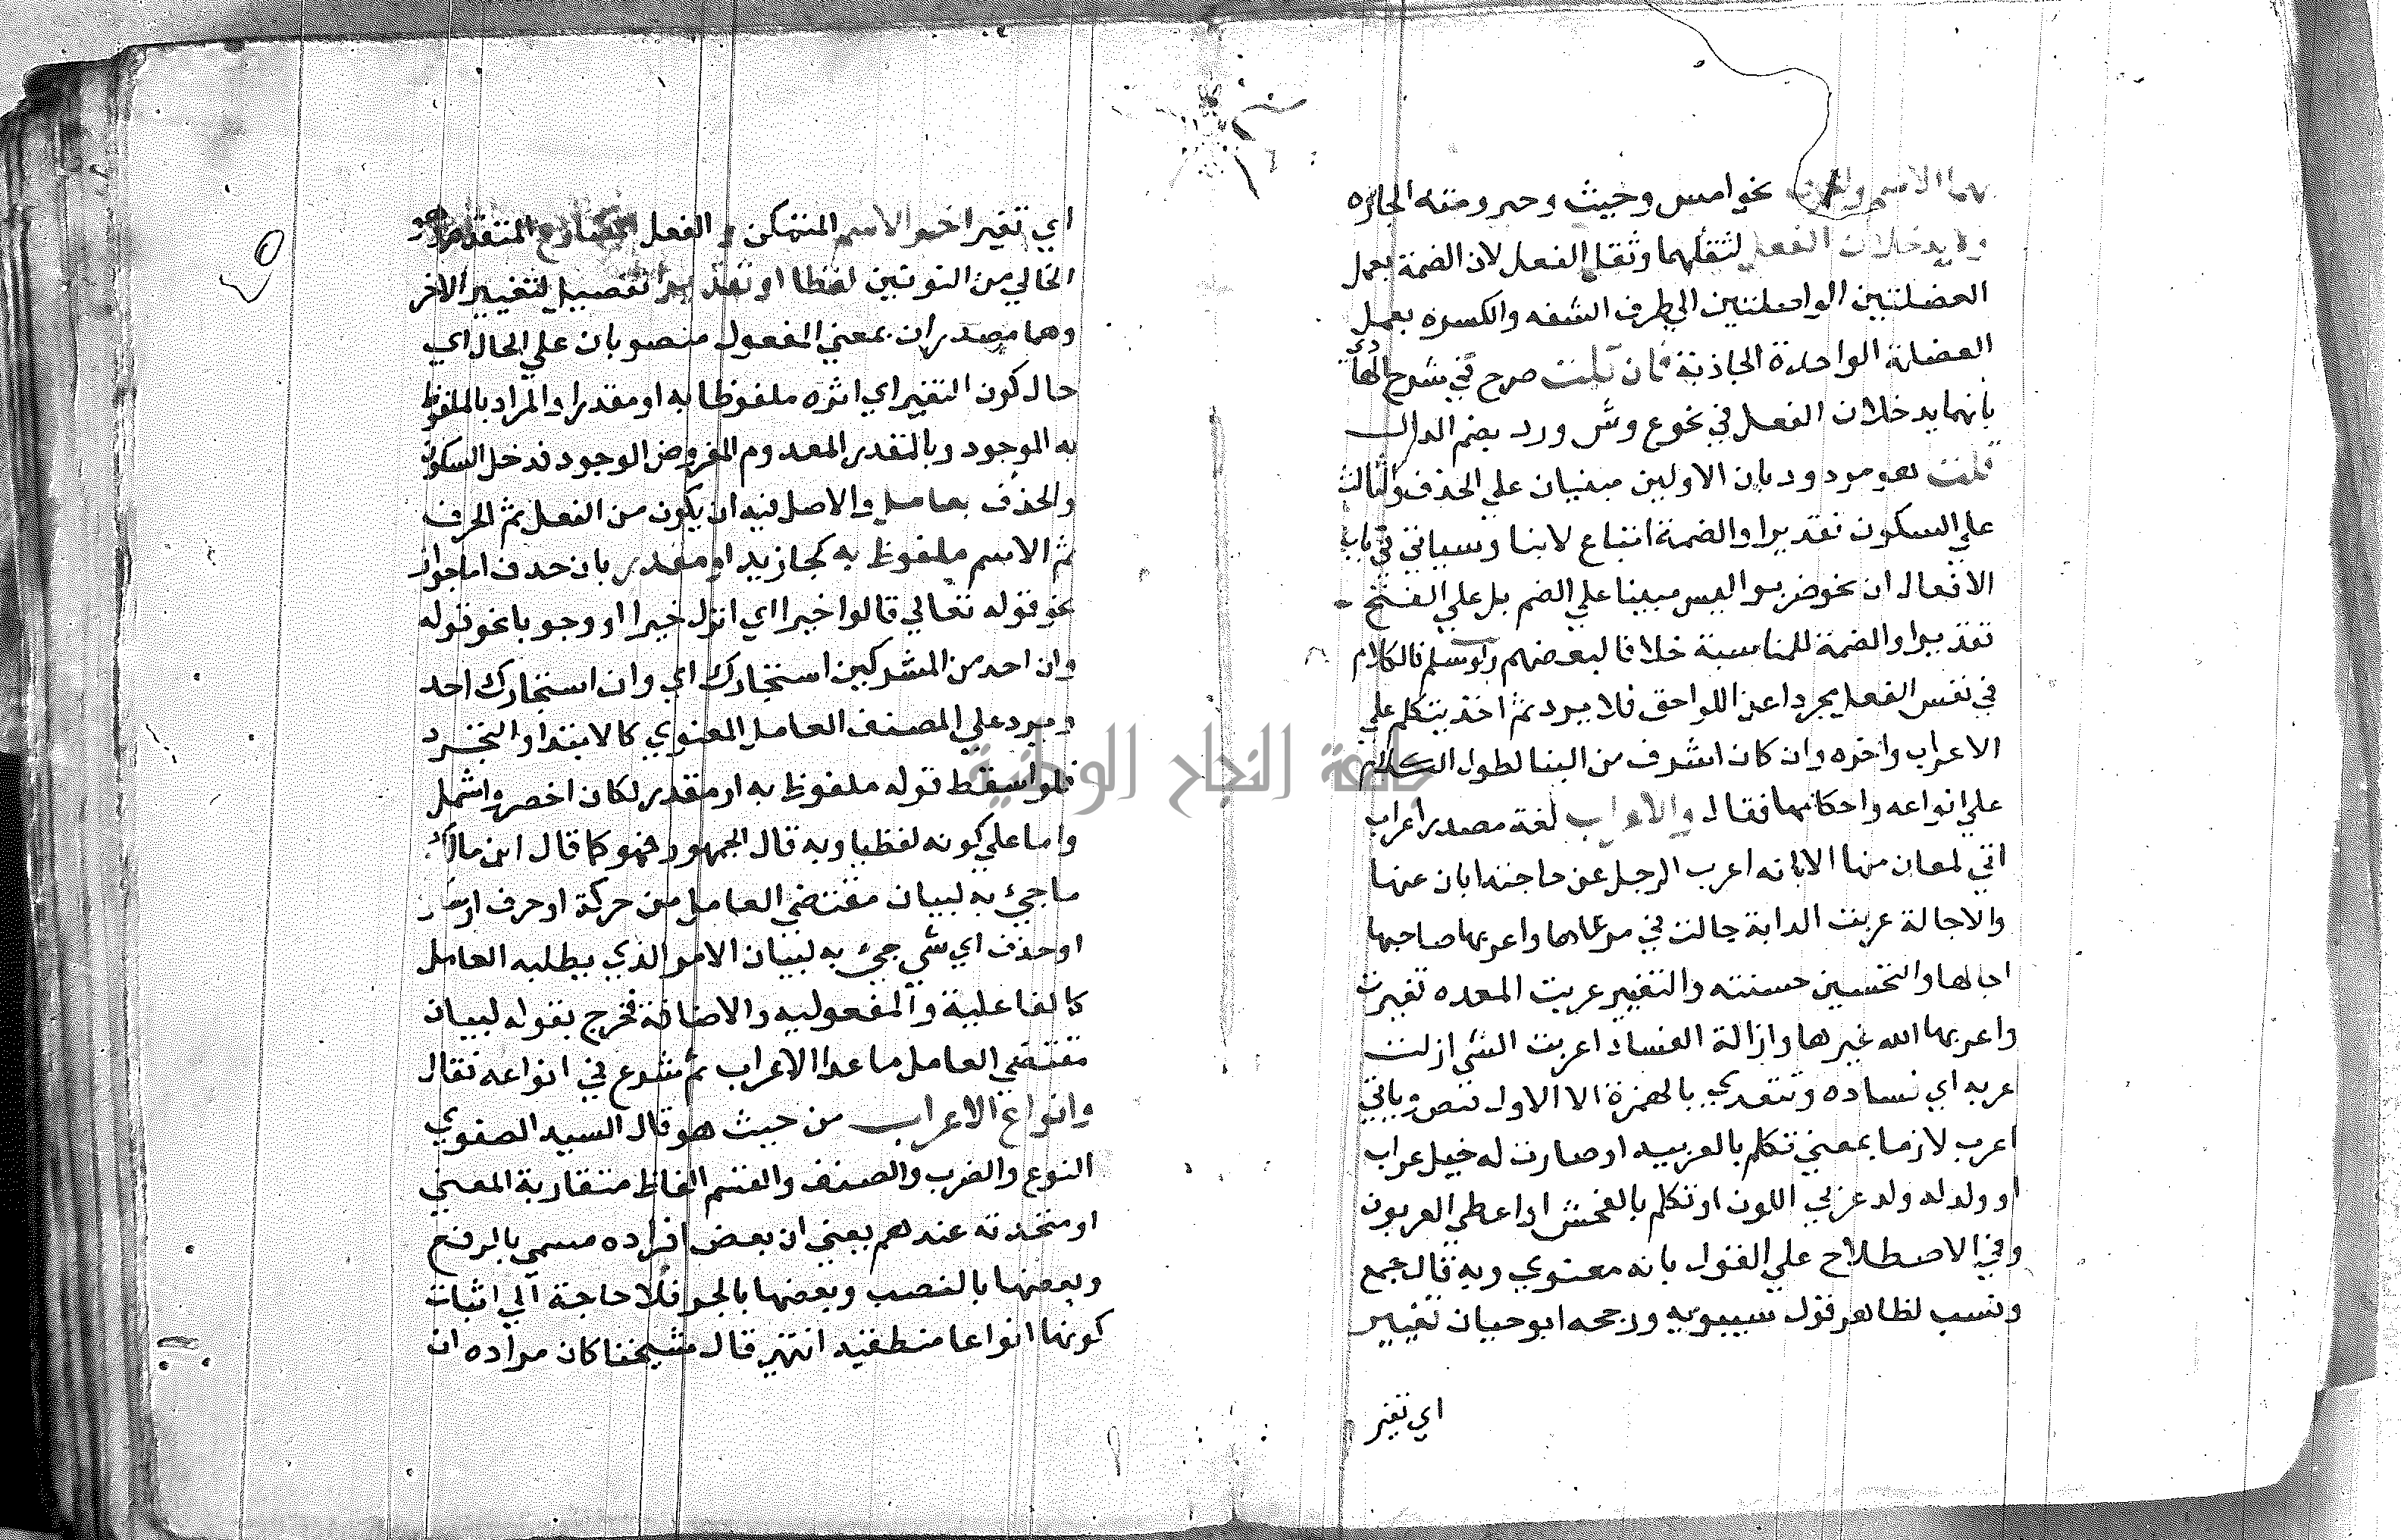 بهما الاسم والحرف نحو امس وحيث وجير ومنذ الجاره
ولا يدخلان الفعل لثقلهما وثقل الفعل لان الضمة بعمل
العضلتين الواصلتين الي طرف الشفه والكسره بعمل
العضلة الواحدة الجاذبة فان قلت صرح في شرح
بانهما يدخلان الفعل في نحو ع وش ورد بضم الدال
قلت هو مردود بان الاولين مبنيان علي الحذف والثالث
علي السكون تقديرا والضمة اتباع لابنا وسياتي في باب
الافعال ان نحو ضربوا ليس مبينا علي الضم بل علي الفتح
تقديرا والضمة للمناسبة خلافا لبعضهم ولو سلم فالكلام
في نفس الفعل مجردا عن اللواحق فلا يرد ثم اخذ يتكلم علي
الاعراب واخره وان كان اشرف من البنا لطول الكلام
علي انواعه واحكامها فقال والاعراب لغة مصدر اعرب
اتي لمعان منها الابانه اعرب الرجل عن حاجته ابان عنها
والاجالة عربت الدابة جالت في مرعاها واعربها صاحبها
اجالها والتحسين حسنته والتغيير عربت المعده تغيرت
واعربها الله غيرها وازالة الفساد اعربت الشي ازلت
عربه اي فساده وتتعدي بالهمزة الا الاول وياتي
اعرب لازما بمعني تكلم بالعربيه او صارت له خيل عراب
او ولد له ولد عربي اللون او تكلم بالفحش او اعطي العربون
وفي الاصطلاح علي القول بانه معنوي وبه قال جمع
ونسب لظاهر قول سيبويه ورجحه ابو حيان تغيير
اي تغير
اي تغير اخر الاسم المتمكن و الفعل المضارع المتقدم
الخالي من النونين لفظا او تقديرا تفصيل لتغيير الاخر
وهما مصدران بمعني المفعول منصوبان علي الحال اي
حال كون التغيير اي اثره ملفوظا به او مقدرا والمراد بالملفوظ
به الموجود وبالمقدر المعدوم المفروض الوجود فدخل السكون
والحذف بعامل والاصل فيه ان يكون من الفعل ثم الحرف
ثم الاسم ملفوظ به كجا زيد او مقدر بان حذف اما جوازا
نحو قوله تعالي قالوا خيرا اي انزل خيرا او وجوبا نحو قوله
وان احد من المشركين استجارك اي وان استجارك احد
ويرد علي المصنف العامل المعنوي كالابتدا والتجرد
فلو اسقط قوله ملفوظ به او مقدر لكان اخصر واشمل
واما علي كونه لفظيا وبه قال الجمهور فهو كما قال ابن مالك
ما جيء به لبيان مقتضي العامل من حركة او حرف او
او حذف اي شي جيء به لبيان الامر الذي يطلبه العامل
كالفاعلية والمفعوليه والاضافة فخرج بقوله لبيان
مقتضي العامل ما عدا الاعراب ثم شرع في انواعه فقال
وانواع الاعراب من حيث هو قال السيد الصفوي
النوع والضرب والصنف والقسم الفاظ متقاربة المعني
او متحدته عندهم بعني ان بعض افراده مسمي بالرفع
وبعضها بالنصب وبعضها بالجر فلا حاجة الي اثبات
كونها انواعا منطقيه انتهي قال شيخنا كان مراده ان
جامعة النجاح الوطنية